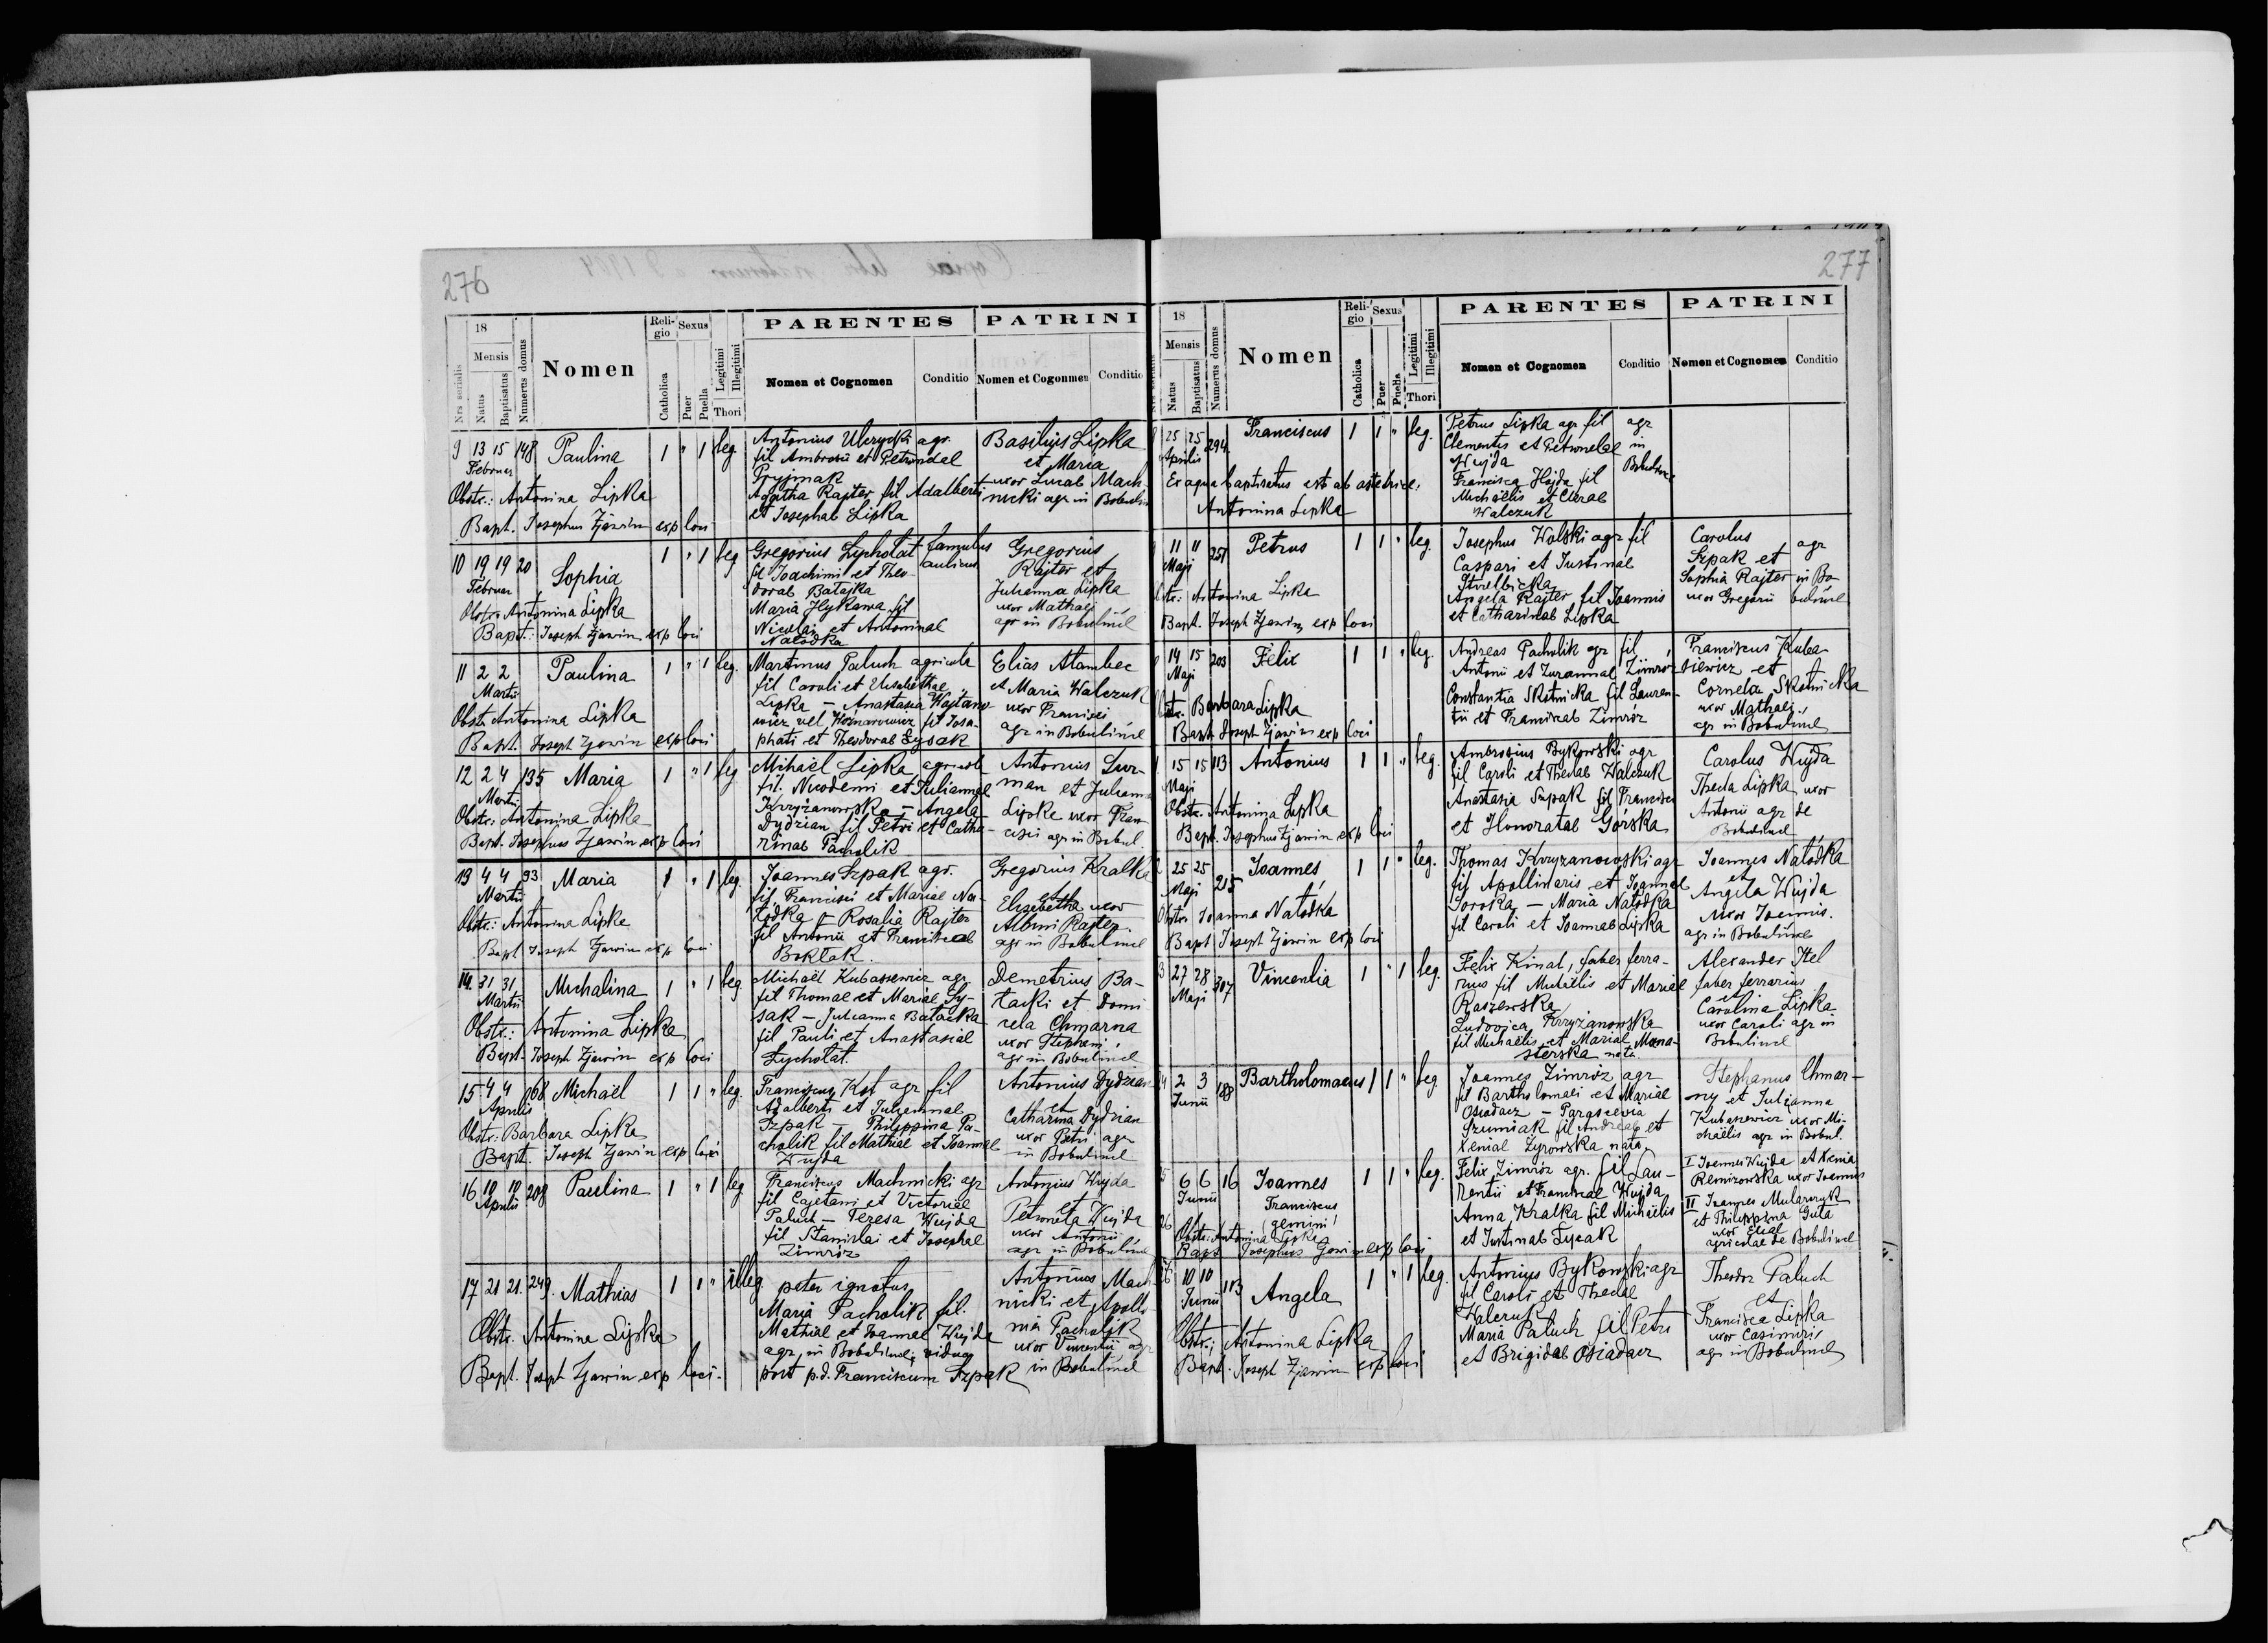 276
18
Mensis
Nrs serialis
Natus
Baptisatus
Numerus domus
Nomen
Reli-
gio
Sexus
Catholica
Puer
Puella
Legitimi
Illegitimi
Thori
PARENTES
Nomen et Cognomen
Conditio
PATRINI
Nomen et Cogonmen
Conditio
9 13 15 148 Paulina 1 " 1 leg.
Februar
Obstr.: Antonina Lipka
Bapt. Josephus Zjawin exp loci
Antonius Ubrycki agr.
fil Ambrosii et Petronelae
Pryjmak
Agatha Rajter fil Adalberti
et Josephae Lipka
Basilius Lipka
et Maria
uxor Lucae Mach
nicki agr in Bobulin
10 19 19 20 Sophia 1 " 1 leg
Februar
Obstr. Antonina Lipka
Bapt.: Joseph Zjawin exp loci
Gregorius Lycholat famulus
fil Joachimi et Theo- aulicus
dorae Batajka
Maria Hykawa fil
Nicolai et Antoninae
Natodka
Gregorius
Rajter et
Julianna Lipka
uxor Mathaei
agr in Bobulince
11 2 2 Paulina 1 " 1 leg.
Martii
Obstr Antonina Lipka
Bapt. Joseph Zjawin exp loci
Martinus Paluch agricola
fil Caroli et Elisabethae
Lipka - Anastasia Wojtano
wicz vel fil Josa-
phati et Theodorae Sysak
Elias Atambec
et Maria Walczuk
uxor Francisci
agr in Bobulince
12 2 4 135 Maria 1 " 1 leg
Martii
Obstr.: Antonina Lipka
Bapt. Josephus Zjawin exp loci
Michaël Lipka agricola
fil. Nicodemi et Juliannae
Krzyżanowska - Angela
Dydzian fil Petri et Catha-
rinae Pacholik
Antonius Sur-
man et Julianna
Lipka uxor Fran-
cisci agr in Bobul.
13 4 4 93 Maria 1 " 1 leg.
Martii
Obstr.: Antonina Lipka
Bapt. Joseph Zjawin exp loci
Joannes Szpak agr.
fil Francisci et Mariae Na-
todka - Rosalia Rajter
fil Antonii et Franciscae
Boktak.
Gregorius Kralka
et
Elisabetha uxor
Albini Rajter
agr in Bobulince
14. 31 31 Michalina 1 " 1 leg
Martii
Obstr.: Antonina Lipka
Bapt. Joseph Zjawin exp loci
Michaël Kubasiewicz agr.
fil Thomae et Mariae Sy-
sak - Julianna Batacka
fil Pauli et Anastasiae
Lycholat.
Demetrius Ba-
tacki et Domi-
cela Chmarna
uxor Stephani
agr in Bobulince
15 4 4 268 Michaël 1 1 " leg.
Aprilis
Obstr.: Barbara Lipka
Bapt. Joseph Zjawin exp loci
Franciscus Kot agr fil
Adalberti et Juliannae
Szpak - Philippina Pa-
cholik fil Mathiae et Joannae
Wujda
Antonius Dydzian
et
Catharina Dydzian
uxor Petri agr
in Bobulince
16 10 10 208 Paulina 1 " 1 leg
Aprilis
Franciscus Machnicki agr
fil Cajetani et Victoriae
Paluch - Teresa Wujda
fil Stanislai et Josephae
Zimróz
Antonius Wujda
et
Petronela Wujda
uxor Antonii
agr in Bobulince
17 21 21. 249. Mathias 1 1 " illeg.
Obstr. Antonina Lipka
Bapt. Joseph Zjawin exp loci.
pater ignotus
Maria Pacholik fil.
Mathiae et Joannae Wujda
agr in Bobulince, vidua
post p.d. Franciscum Szpak
Antonius Mach
nicki et Apollo-
nia Pacholik
uxor Vincentii agr
in Bobulince
277
18
Mensis
Natus
Baptisatus
Numerus domus
Nomen
Reli-
gio
Sexus
Catholica
Puer
Puella
Legitimi
Illegitimi
Thori
PARENTES
Nomen et Cognomen
Conditio
PATRINI
Nomen et Cognomen
Conditio
25 25 294 Franciscus 1 1 " leg.
Aprilis
Ex aqua baptisatus est ab obstetrice:
Antonina Lipka
Petrus Lipka agr fil agr
Clementis et Petronelae in
Wujda Bobulince
Francisca Hajda fil
Michaëlis et Clarae
Walczuk
11 11 251 Petrus 1 1 " leg.
Maji
Obstr.: Antonina Lipka
Bapt. Joseph Zjawin exp loci
Josephus Wolski agr fil
Caspari et Justinae
Strzelbicka
Angela Rajter fil Joannis
et Catharinae Lipka
Carolus agr
Szpak et
Sophia Rajter in Bo-
uxor Gregorii bulince
14 15 203 Felix 1 1 " leg.
Maji
Obstr. Barbara Lipka
Bapt Joseph Zjawin exp loci
Andreas Pacholik agr fil
Antonii et Zuzannae Zimróz
Constantia Skotnicka fil Lauren-
tii et Franciscae Zimróz
Franciscus Kuba-
siewicz et
Cornela Skotnicka
uxor Mathaei
agr in Bobulince
15 15 113 Antonius 1 1 " leg.
Maji
Obstr. Antonina Lipka
Bapt. Josephus Zjawin exp loci
Ambrosius Bykowski agr
fil Caroli et Theclae Walczuk
Anastasia Szpak fil Francisci
et Honoratae Gorska
Carolus Wujda
Thecla Lipka uxor
Antonii agr de
Bobulince
25 25 215 Joannes 1 1 " leg.
Maji
Obstr Joanna Natodka
Bapt Joseph Zjawin exp loci
Thomas Krzyzanowski agr
fil Apollinaris et Joannae
Soroka - Maria Natodka
fil Caroli et Joannae Lipka
Joannes Natodka
et
Angela Wujda
uxor Joannis.
agr in Bobulince
3 27 28 307 Vincentia 1 " 1 leg.
Maji
Felix Kinal, faber ferra-
rius fil Michaëlis et Mariae
Raszewska
Ludovica Krzyżanowska
fil Michaëlis et Mariae Mona-
sterska nata
Alexander Stel
faber ferrarius
et
Carolina Lipka
uxor Caroli agr in
Bobulince
2 3 188 Bartholomaeus 1 1 " leg
Junii
Joannes Zimróz agr
fil Bartholomaei et Mariae
Osiadacz - Parascevia
Szumiak fil Andreae et
Xeniae Zyrowska nata
Stephanus Chmar-
ny et Julianna
Kubasiewicz uxor Mi-
chaëlis agr in Bobul.
6 6 16 Joannes 1 1 " leg.
Junii Franciscus
26 (gemini)
Obstr: Antonina Lipka
Bapt Josephus Zjawin exp loci
Felix Zimróz agr. fil Lau-
rentii et Franciscae Wujda
Anna Kralka fil Michaëlis
et Justinae Sysak
I Joannes Wujda et Xenia
Remizowska uxor Joannis
II Joannes Mularczyk
et Philippina Guta
uxor Eliae
agricolae de Bobulince
10 10 113 Angela 1 " 1 leg.
Junii
Obstr.: Antonina Lipka
Bapt. Joseph Zjawin exp loci
Antonius Bykowski agr
fil Caroli et Theclae
Walczuk
Maria Paluch fil Petri
et Brigidae Osiadacz
Theodor Paluch
et
Francisca Lipka
uxor Casimiri
agr in Bobulince